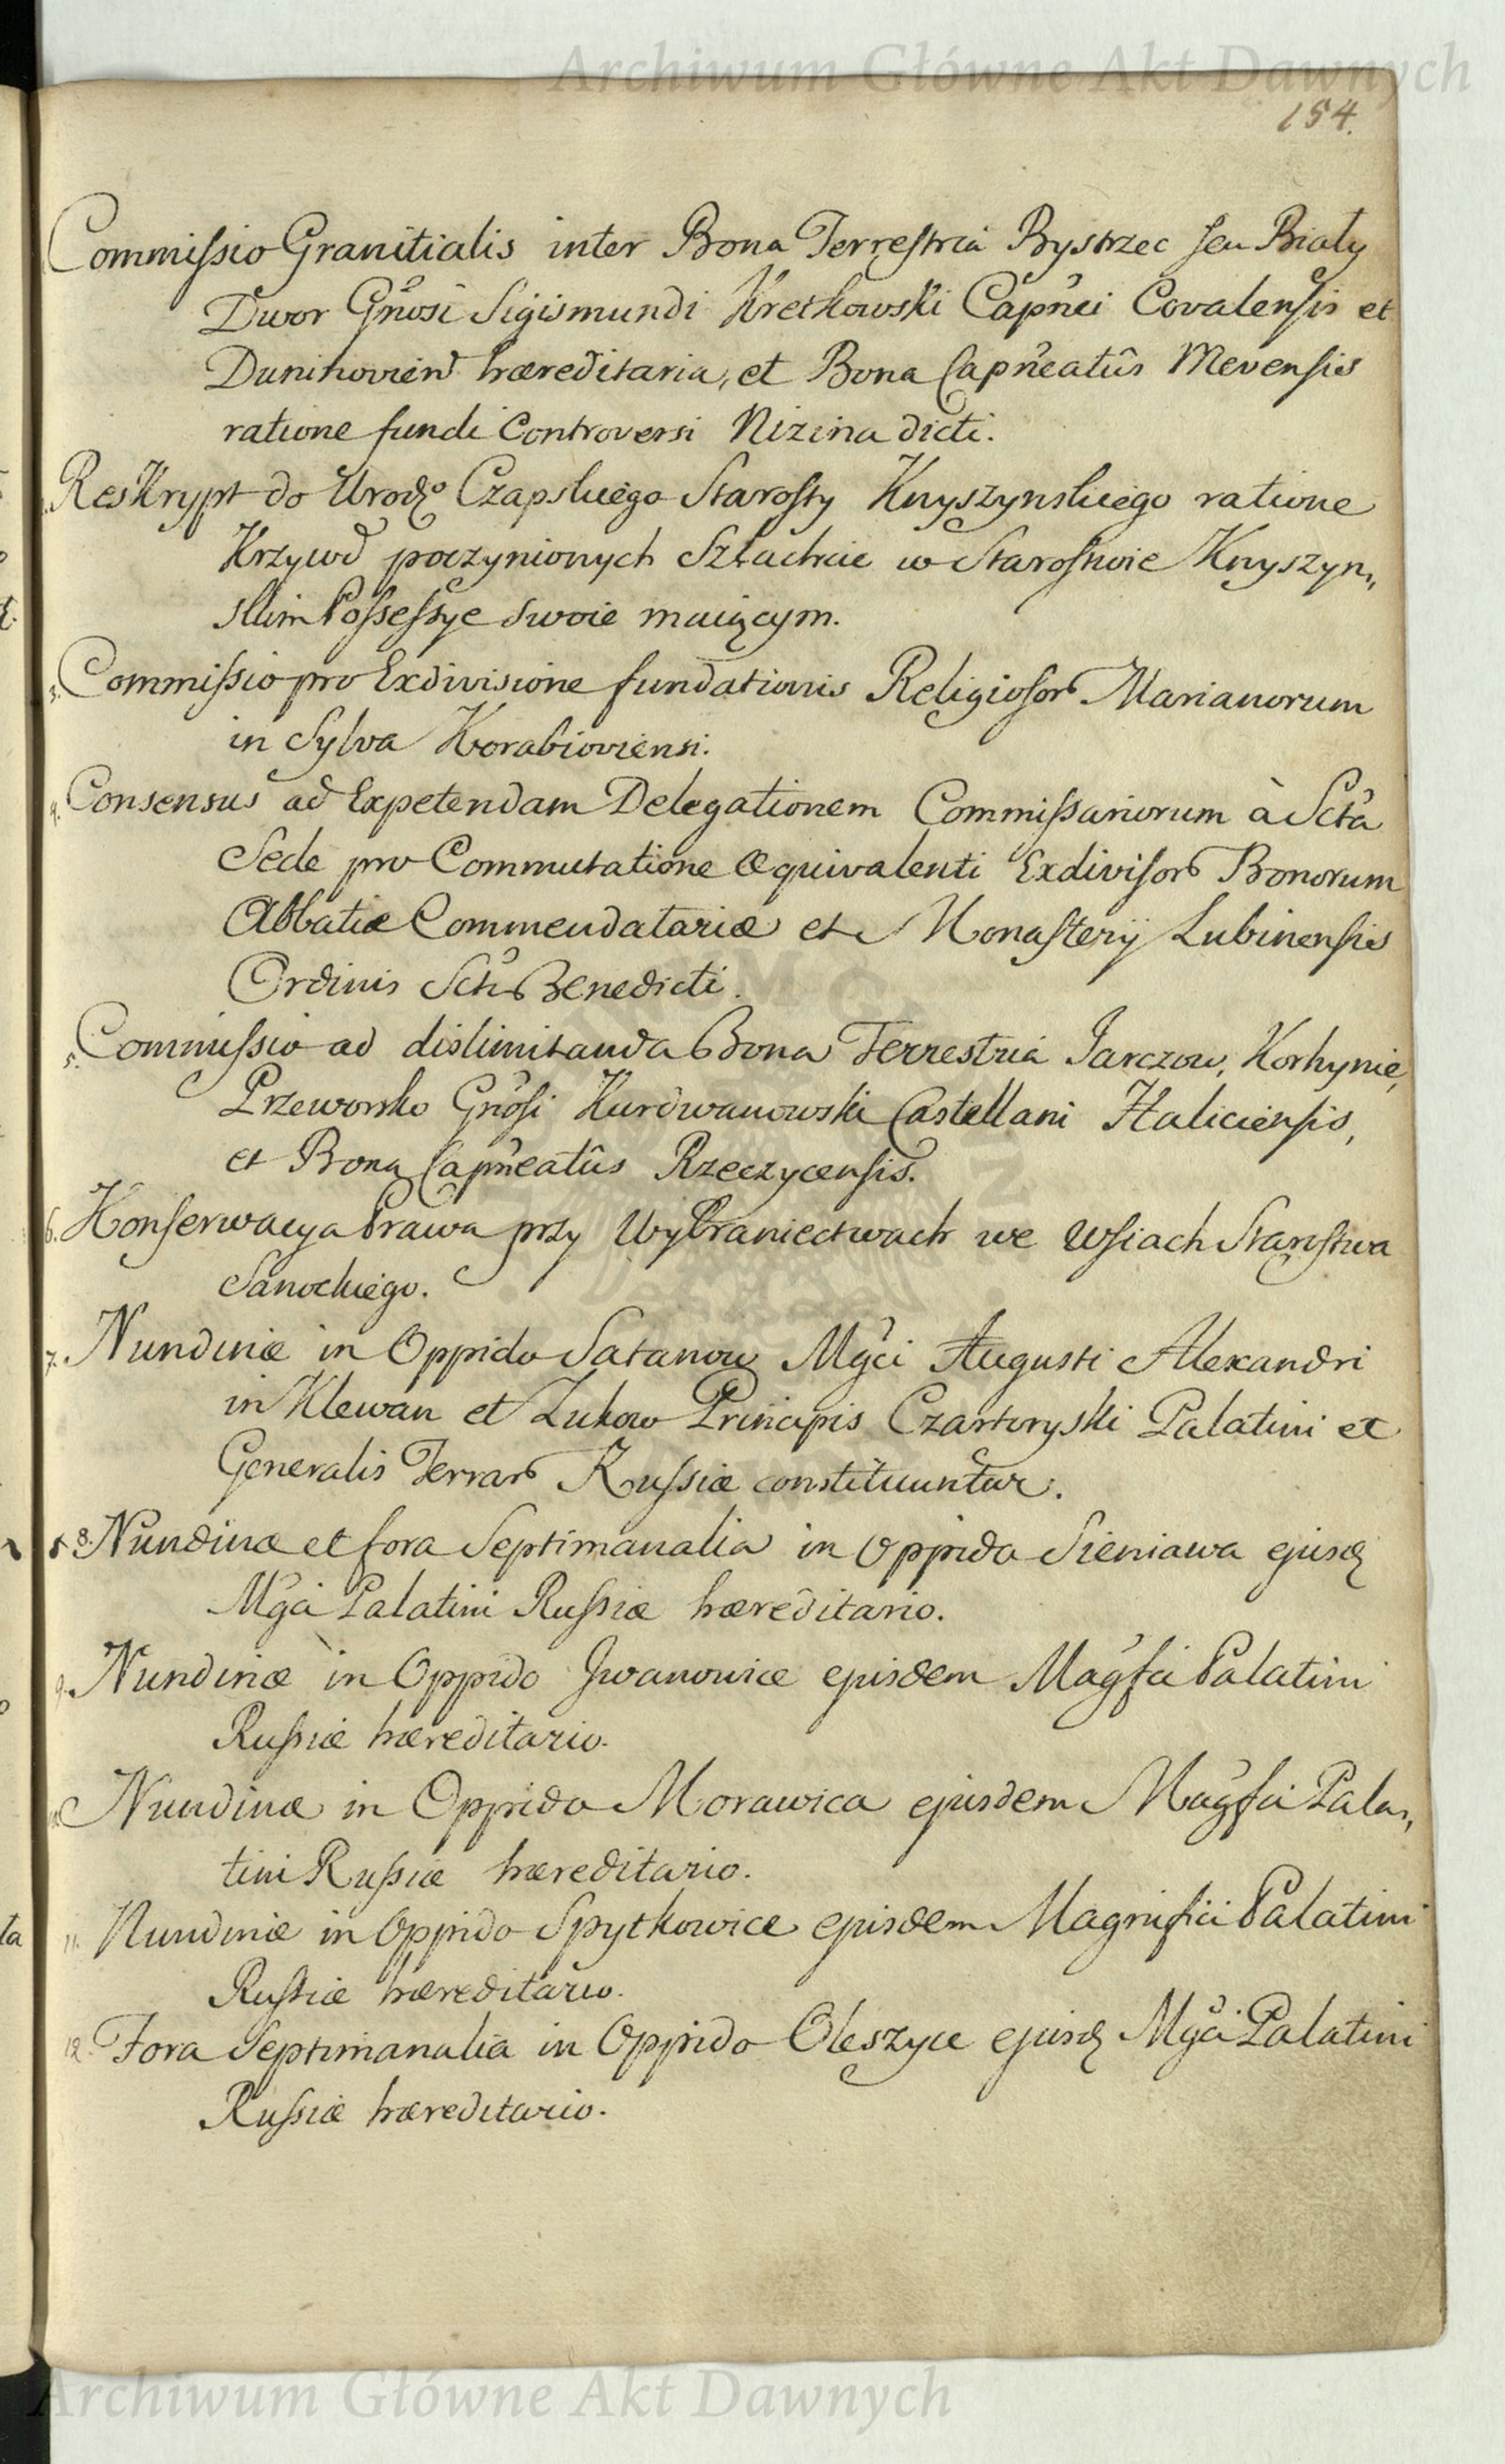 Archiwum Główne Akt Dawnych
154.
Commissio Granitialis inter Bona Terrestria Bystrzec seu Biały
Dwor Gnosi Sigismundi Kretkowski Capnei Covalensis et
hæreditaria, et Bona Capneatûs Mevensis
ratione fundi Controversi Nizina dicti.
ResKrypt do Urodzo Czapskiego Starosty Knyszynskiego ratione
Krzywd poczynionych Szlachcie w Starostwie Knyszyn„
skim Possessye swoie maiącym.
3. Commissio pro Exdivisione fundationis Religiosor Marianorum
in Sylva Korabioviensi.
4. Consensus ad Expetendam Delegationem Commissariorum à Scta
Sede pro Commutatione æquivalenti Exdivisor Bonorum
Abbatiæ Commendatariæ et Monasterÿ Lubinensis
Ordinis Scti Benedicti.
5. Commissio ad dislimitanda Bona Terrestria Jarczow, Korhynie,
Przeworsko Gnosi Kurdwanowski Castellani Haliciensis,
et Bona Capneatûs Rzeczycensis.
6. Konserwacya Prawa przy Wybraniectwach we Wsiach Starostwa
Sanockiego.
7. Nundinæ in Oppido Satanow Mgci Augusti Alexandri
in Klewan et Zukow Principis Czartoryski Palatini et
Generalis Terrar Russiæ constituuntur.
8. Nundinæ et fora Septimanalia in Oppido Sieniawa ejusd
Mgci Palatini Russiæ hæreditario.
9. Nundinæ in Oppido Iwanowice ejusdem Magfci Palatini
Russiæ hæreditario.
10. Nundinæ in Oppido Morawica ejusdem Magfci Pala„
tini Russiæ hæreditario.
11. Nundinæ in Oppido Spytkowice ejusdem Magnifici Palatini
Russiæ hæreditario.
12. Fora Septimanalia in Oppido Oleszyce ejusd Mgci Palatini
Russiæ hæreditario.
Archiwum Główne Akt Dawnych